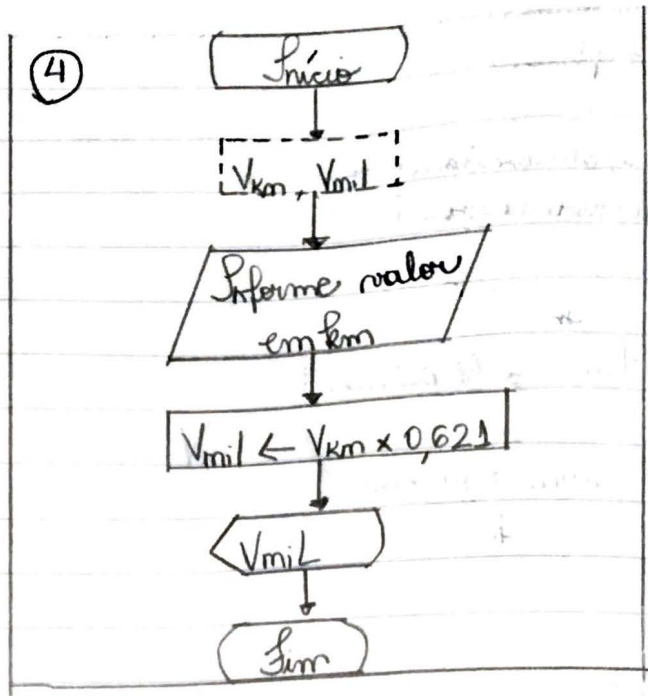 4
Início
Vkm, VmiL
Informe valor
em km
Vmil ← Vkm × 0,621
VmiL
Fim